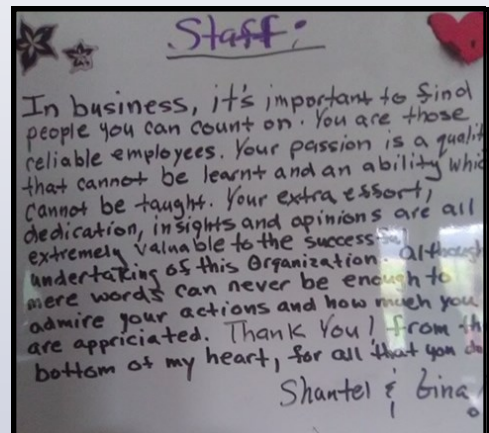 Staff:
In business, it's important to find
people you can count on. You are those
reliable employees. Your passion is a qualit
that cannot be learnt and an ability whic
cannot be taught. Your extra effort,
dedication, insights and apinions are all
extremely valuable to the success
undertaking of this Organization. although
mere words can never be enough to
admire your actions and how much you
are appriciated. Thank You! from th
bottom of my heart, for all that you do
Shantel & Gina